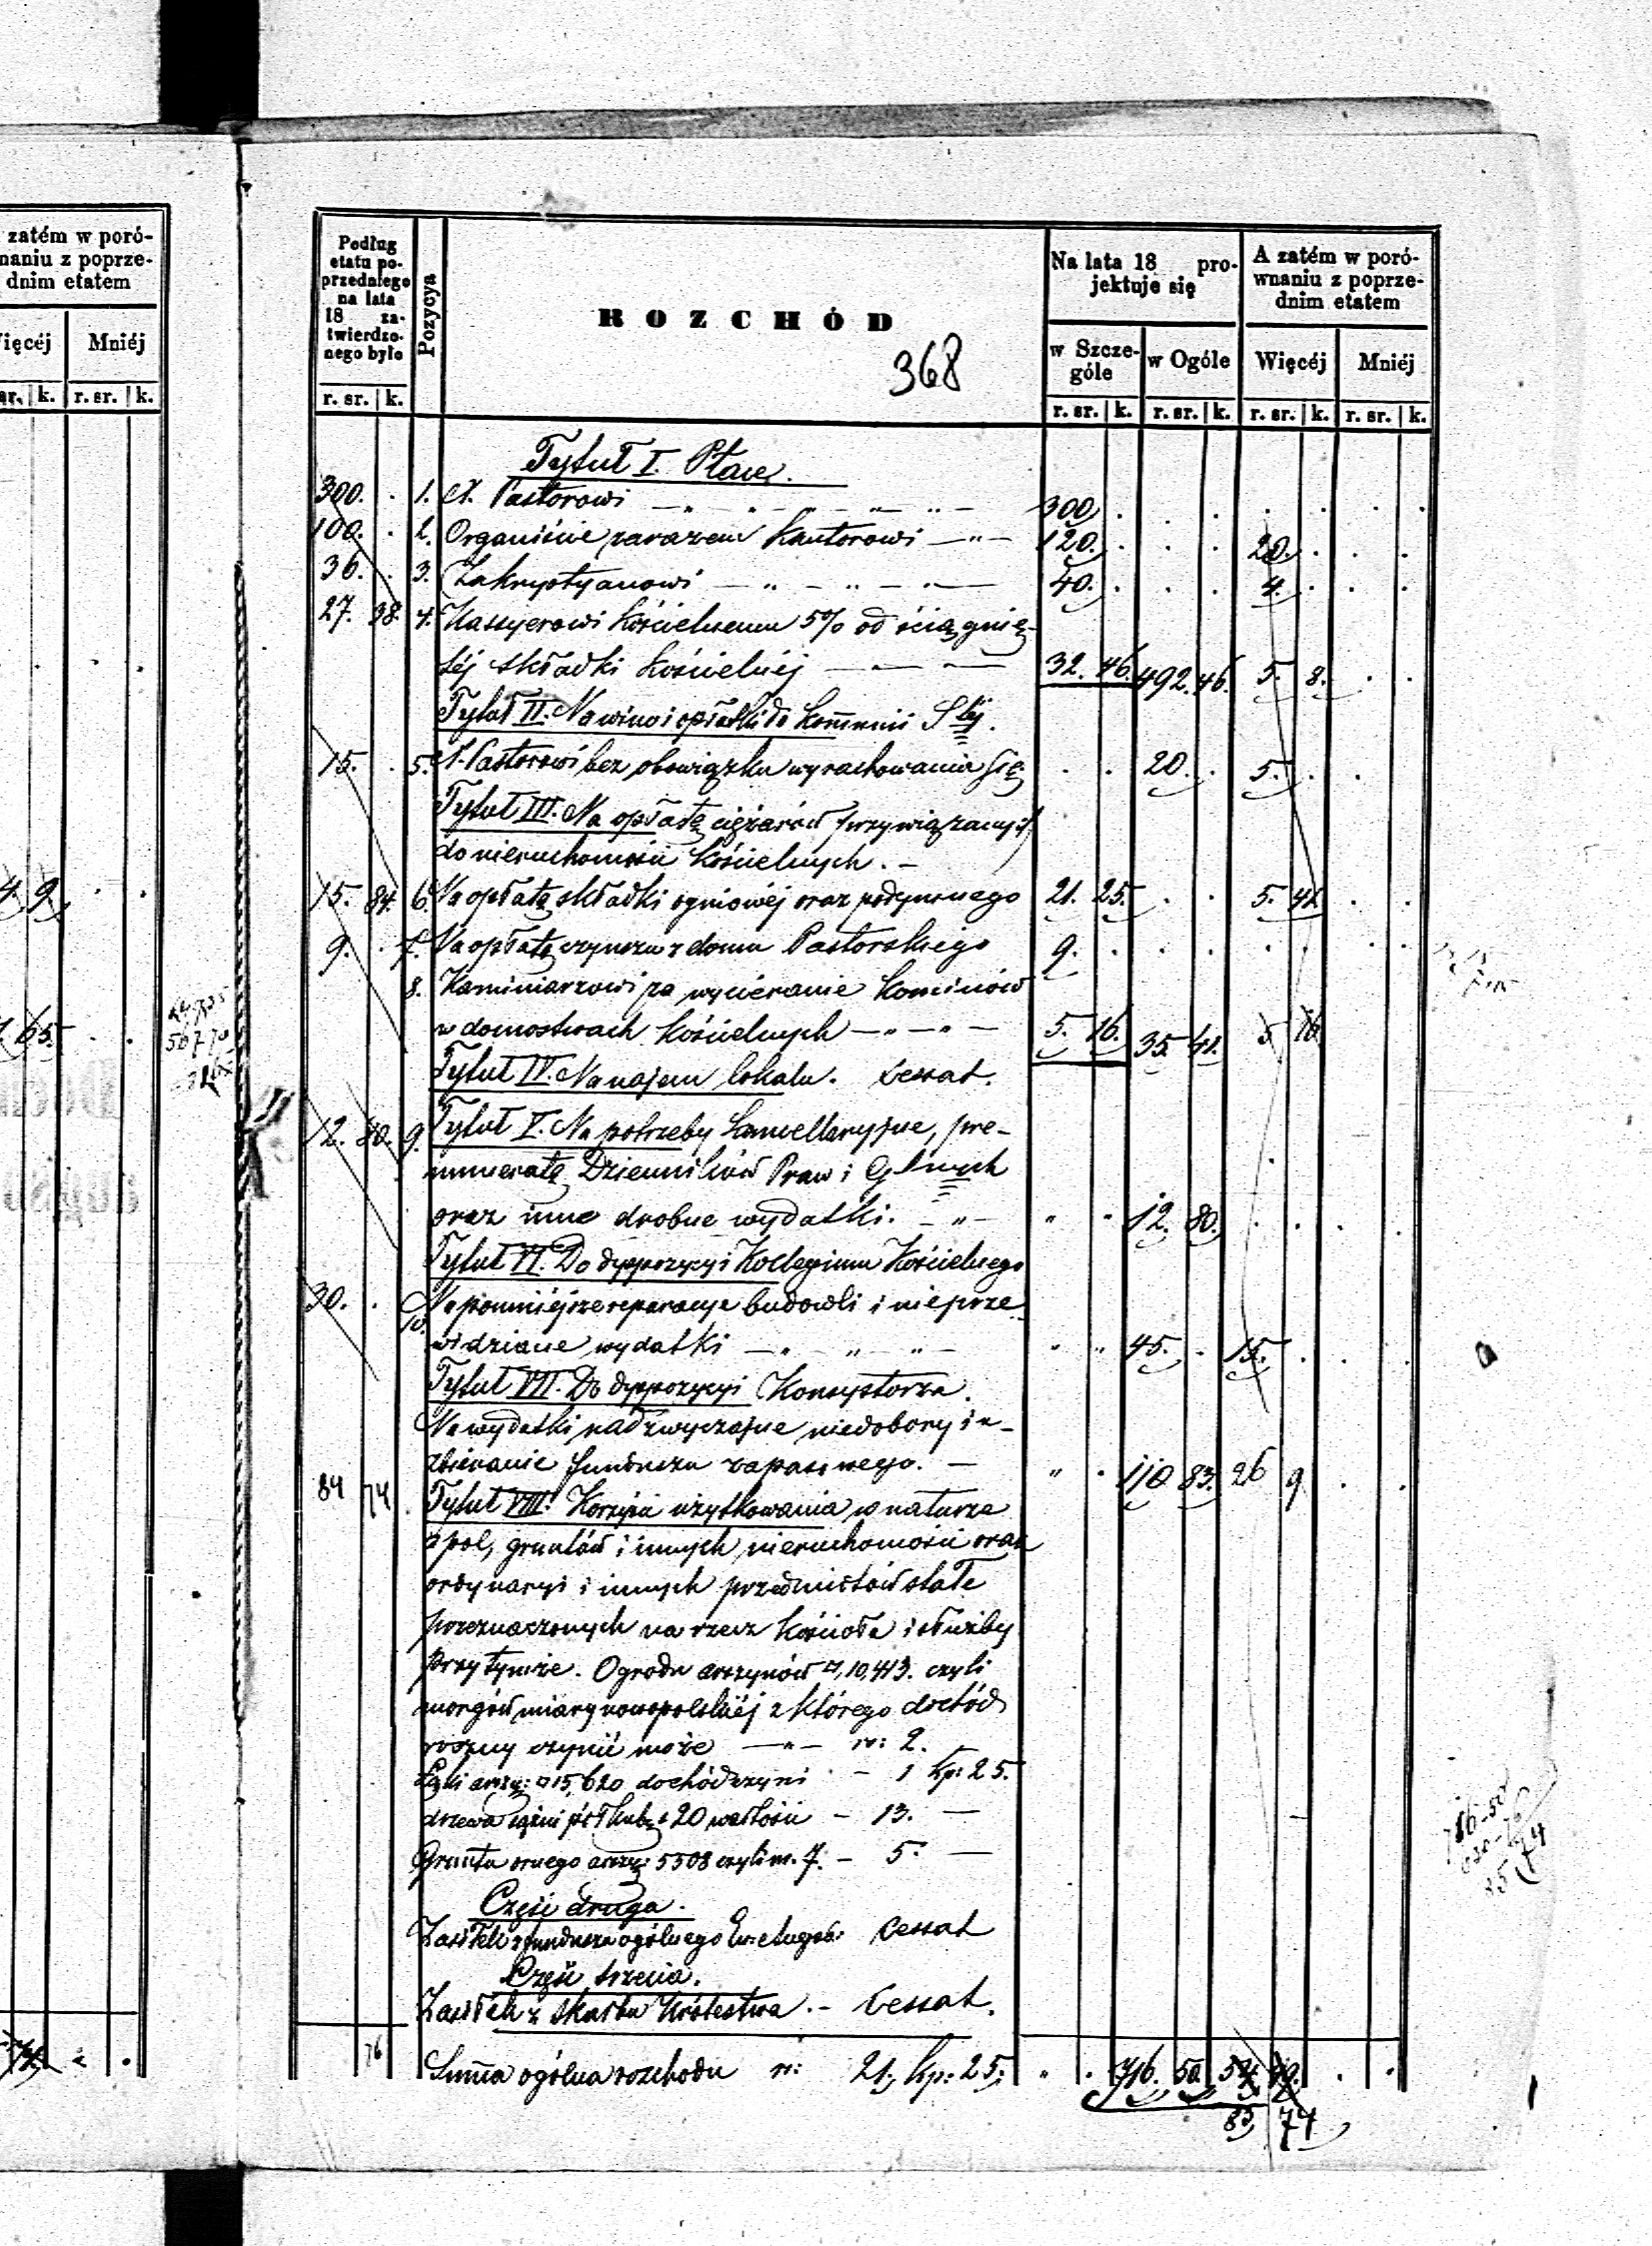 zatém w poró-
naniu z poprze-
dnim etatem
ięcéj Mniéj
sr. k. r. sr. k.
Podług etatu poprzedniego na lata 18 zatwierdzonego było
r. sr. k.
Pozycya
ROZCHÓD
368
Na lata 18 projektuje się
w Szczególe w Ogóle
r. sr. k. r. sr. k.
A zatém w porównaniu z poprzednim etatem
Więcéj Mniéj
r. sr. k. r. sr. k.
Tytuł I. Płace.
300. . 1. X. Pastorowi 300
100. . 2. Organiście zarazem Kantorowi 120. 20.
36. . 3. Zakrystyanowi 40. 4.
27. 38. 4. Kassyerowi Kościelnemu 5% od ściągnię-
téj składki kościelnéj 32. 46. 492. 46. 5. 8.
Tytuł II. Na wino i opłatki do Kommunii Stéj.
15. . 5. X. Pastorowi bez obowiązku wyrachowania się 20. 5.
Tytuł III. Na opłatę ciężarów przywiązanych
do nieruchomości kościelnych. -
15. 84. 6. Na opłatę składki ogniowéj oraz podymnego 21. 25. 5. 41
9. . 7. Na opłatę czynszu z domu Pastorskiego 9.
8. Kaminiarzowi za wycieranie kominów
w domostwach kościelnych 5. 16. 35. 41. 5 16
Tytuł IV. Na najem lokalu. Cessat.
12. 80. 9. Tytuł V. Na potrzeby kancellaryjne, pre-
numeratę Dzienników Praw i
oraz inne drobne wydatki. 12. 80.
Tytuł VI. Do dyspozycyi Kollegium Kościelnego
30. . 10. Na pomniejsze reparacye budowli i nieprze-
widziane wydatki 45. 15.
Tytuł VII. Do dyspozycyi Konsystorza.
Na wydatki nadzwyczajne niedobory i u-
zbieranie funduszu zapasowego. 110 83. 26 9
84 74 Tytuł VIII. Korzyści użytkowania w naturze
z pol, gruntów i innych nieruchomości oraz
ordynaryi i innych przedmiotów stale
przeznaczonych na rzecz Kościoła i służby
przy tymże. Ogrodu arszynów □ 10,413. czyli
morgów miary nowopolskiéj z którego dochód
roczny czynić może rs: 2.
Łąki arszy: □ 15,620 dochód czyni - 1 kp: 25.
drzewa sążni pół kub: 20 wartości - 13. -
Gruntu ornego arszy: 5508 czyli m. 7. - 5. -
Część druga.
Zasiłek z funduszu ogólnego Cessat
Część trzecia.
Zasiłek z skarbu Królestwa. - Cessat.
76 Summa ogólna rozchodu rs: 21, kp: 25. 716. 50
83 74